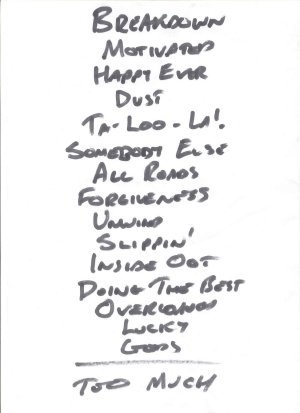 BREAKDOWN
MOTIVATED
HAPPY EVER
DUST
TA-LOO-LA!
SOMEBODY ELSE
ALL ROADS
FORGIVENESS
UNWIND
SLIPPIN'
INSIDE OUT
DOING THE BEST
OVERLOAD
LUCKY
GODS
TOO MUCH